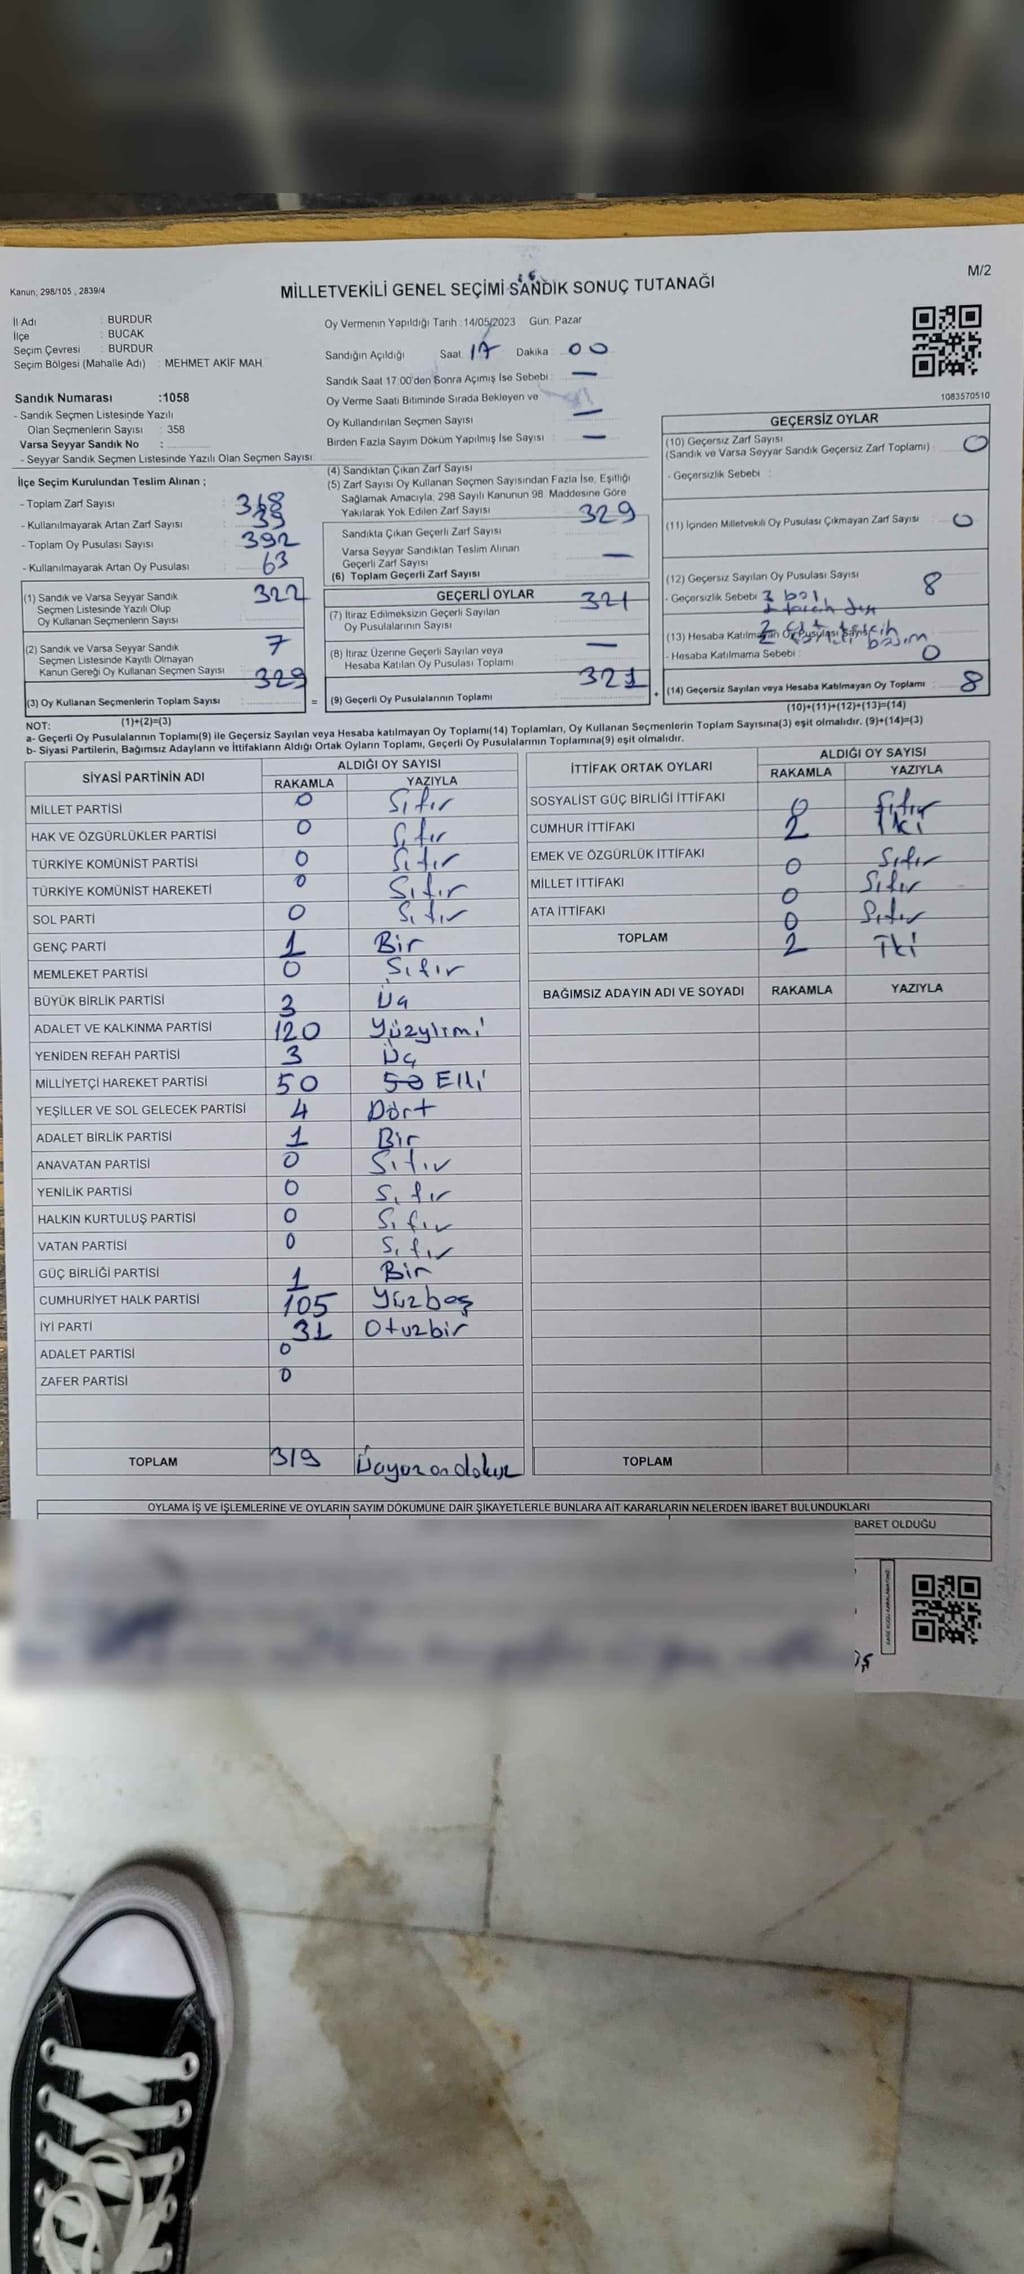 Kanun, 298/105 , 2839/4
MİLLETVEKİLİ GENEL SEÇİMİ SANDIK SONUÇ TUTANAĞI
M/2
İl Adı : BURDUR
İlçe : BUCAK
Seçim Çevresi : BURDUR
Seçim Bölgesi (Mahalle Adı) : MEHMET AKİF MAH
Sandık Numarası :1058
- Sandık Seçmen Listesinde Yazılı
Olan Seçmenlerin Sayısı : 358
Varsa Seyyar Sandık No :
- Seyyar Sandık Seçmen Listesinde Yazılı Olan Seçmen Sayısı
İlçe Seçim Kurulundan Teslim Alınan ;
- Toplam Zarf Sayısı : 368
- Kullanılmayarak Artan Zarf Sayısı : 39
- Toplam Oy Pusulası Sayısı : 392
- Kullanılmayarak Artan Oy Pusulası : 63
(1) Sandık ve Varsa Seyyar Sandık
Seçmen Listesinde Yazılı Olup
Oy Kullanan Seçmenlerin Sayısı 322
(2) Sandık ve Varsa Seyyar Sandık
Seçmen Listesinde Kayıtlı Olmayan
Kanun Gereği Oy Kullanan Seçmen Sayısı 7
(3) Oy Kullanan Seçmenlerin Toplam Sayısı 329 =
(1)+(2)=(3)
Oy Vermenin Yapıldığı Tarih :14/05/2023 Gün: Pazar
Sandığın Açıldığı Saat: 17 Dakika : 00
Sandık Saat 17:00'den Sonra Açımış İse Sebebi : —
Oy Verme Saati Bitiminde Sırada Bekleyen ve
Oy Kullandırılan Seçmen Sayısı —
Birden Fazla Sayım Döküm Yapılmış İse Sayısı —
(4) Sandıktan Çıkan Zarf Sayısı
(5) Zarf Sayısı Oy Kullanan Seçmen Sayısından Fazla İse, Eşitliği
Sağlamak Amacıyla, 298 Sayılı Kanunun 98. Maddesine Göre
Yakılarak Yok Edilen Zarf Sayısı
Sandıkta Çıkan Geçerli Zarf Sayısı 329
Varsa Seyyar Sandıktan Teslim Alınan
Geçerli Zarf Sayısı —
(6) Toplam Geçerli Zarf Sayısı
GEÇERLİ OYLAR
(7) İtiraz Edilmeksizin Geçerli Sayılan
Oy Pusulalarının Sayısı 321
(8) İtiraz Üzerine Geçerli Sayılan veya
Hesaba Katılan Oy Pusulası Toplamı —
(9) Geçerli Oy Pusulalarının Toplamı 321 +
1083570510
GEÇERSİZ OYLAR
(10) Geçersiz Zarf Sayısı
(Sandık ve Varsa Seyyar Sandık Geçersiz Zarf Toplamı) 0
- Geçersizlik Sebebi :
(11) İçinden Milletvekili Oy Pusulası Çıkmayan Zarf Sayısı 0
(12) Geçersiz Sayılan Oy Pusulası Sayısı 8
- Geçersizlik Sebebi
(13) Hesaba Katılmayan Oy Pusulası Sayısı
- Hesaba Katılmama Sebebi : 0
(14) Geçersiz Sayılan veya Hesaba Katılmayan Oy Toplamı 8
(10)+(11)+(12)+(13)=(14)
NOT:
a- Geçerli Oy Pusulalarının Toplamı(9) ile Geçersiz Sayılan veya Hesaba katılmayan Oy Toplamı(14) Toplamları, Oy Kullanan Seçmenlerin Toplam Sayısına(3) eşit olmalıdır. (9)+(14)=(3)
b- Siyasi Partilerin, Bağımsız Adayların ve İttifakların Aldığı Ortak Oyların Toplamı, Geçerli Oy Pusulalarının Toplamına(9) eşit olmalıdır.
SİYASİ PARTİNİN ADI ALDIĞI OY SAYISI
RAKAMLA YAZIYLA
MİLLET PARTİSİ 0 Sıfır
HAK VE ÖZGÜRLÜKLER PARTİSİ 0 Sıfır
TÜRKİYE KOMÜNİST PARTİSİ 0 Sıfır
TÜRKİYE KOMÜNİST HAREKETİ 0 Sıfır
SOL PARTİ 0 Sıfır
GENÇ PARTİ 1 Bir
MEMLEKET PARTİSİ 0 Sıfır
BÜYÜK BİRLİK PARTİSİ 3 Üç
ADALET VE KALKINMA PARTİSİ 120 Yüzyirmi
YENİDEN REFAH PARTİSİ 3 Üç
MİLLİYETÇİ HAREKET PARTİSİ 50 50 Elli
YEŞİLLER VE SOL GELECEK PARTİSİ 4 Dört
ADALET BİRLİK PARTİSİ 1 Bir
ANAVATAN PARTİSİ 0 Sıfır
YENİLİK PARTİSİ 0 Sıfır
HALKIN KURTULUŞ PARTİSİ 0 Sıfır
VATAN PARTİSİ 0 Sıfır
GÜÇ BİRLİĞİ PARTİSİ 1 Bir
CUMHURİYET HALK PARTİSİ 105 Yüzbeş
İYİ PARTİ 31 Otuzbir
ADALET PARTİSİ 0
ZAFER PARTİSİ 0
TOPLAM 319
İTTİFAK ORTAK OYLARI ALDIĞI OY SAYISI
RAKAMLA YAZIYLA
SOSYALİST GÜÇ BİRLİĞİ İTTİFAKI 0 Sıfır
CUMHUR İTTİFAKI 2 İki
EMEK VE ÖZGÜRLÜK İTTİFAKI 0 Sıfır
MİLLET İTTİFAKI 0 Sıfır
ATA İTTİFAKI 0 Sıfır
TOPLAM 2 İki
BAĞIMSIZ ADAYIN ADI VE SOYADI RAKAMLA YAZIYLA
TOPLAM
OYLAMA İŞ VE İŞLEMLERİNE VE OYLARIN SAYIM DÖKÜMÜNE DAİR ŞİKAYETLERLE BUNLARA AİT KARARLARIN NELERDEN İBARET BULUNDUKLARI
BARET OLDUĞU